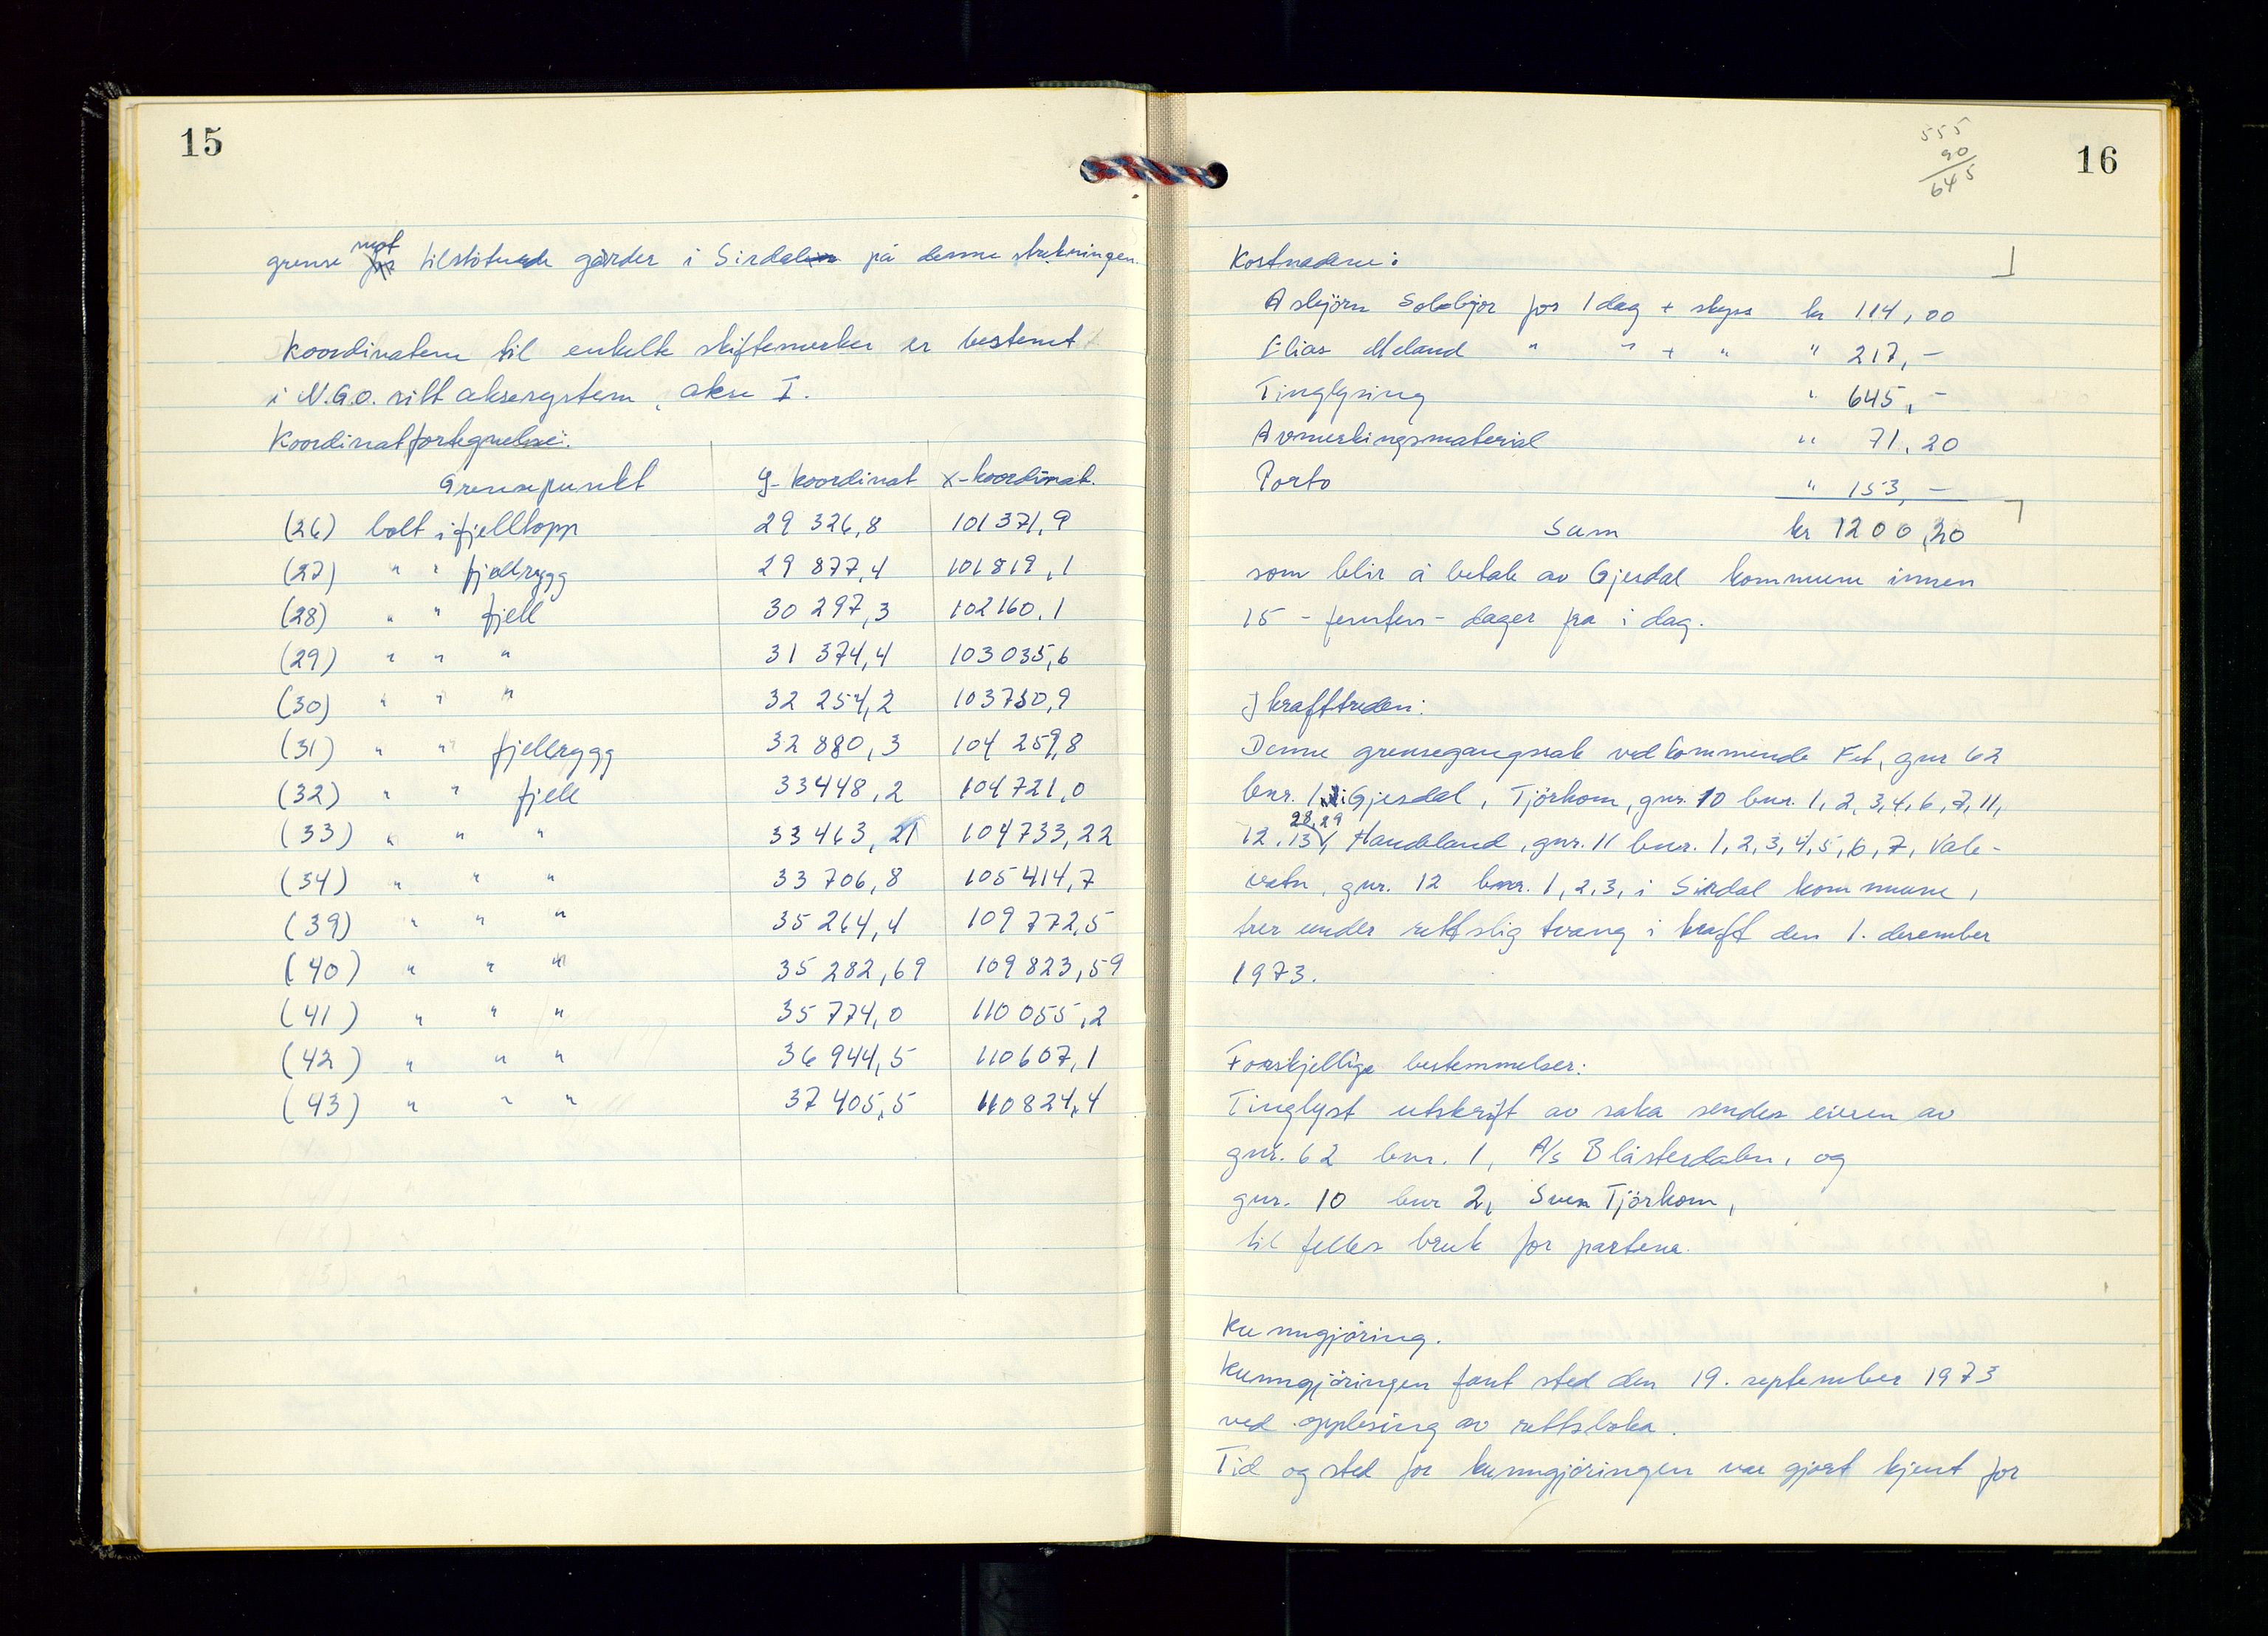 15
grense mot tilstötende gårder i Sirdal på denne strekningen.
Koordinatene til enkelte skiftemerker er bestemt
i N.G.O. sitt aksesystem, akse I.
Koordinatfortegnelse:
Grensepunkt y-koordinat x-koordinat.
(26) bolt i fjelltopp 29 326,8 101371,9
(27) " " fjellrygg 29 877,4 101819,1
(28) " " fjell 30 297,3 102160,1
(29) " " " 31 374,4 103035,6
(30) " " " 32 254,2 103750,9
(31) " " fjellrygg 32 880,3 104 259,8
(32) " " fjell 33448,2 104721,0
(33) " " " 33463,21 104733,22
(34) " " " 33 706,8 105414,7
(39) " " " 35 264,4 109772,5
(40) " " " 35 282,69 109823,59
(41) " " " 35 774,0 110055,2
(42) " " " 36 944,5 110607,1
(43) " " " 37 405,5 110824,4
555
90
645
16
Kostnadene:
Asbjörn Solbjør for 1 dag + skyss kr 114,00
Elias Meland " " + " " 217,-
Tinglysing " 645,-
Avmerkingsmaterial " 71,20
Porto " 153,-
Sum kr 1200,20
som blir å betale av Gjesdal kommune innen
15 - femten - dager fra i dag.
Ikrafttreden:
Denne grensegangssak vedkommende Fet, gnr 62
bnr. 1, i Gjesdal, Tjörhom, gnr. 10 bnr. 1, 2, 3, 4, 6, 7, 11,
28, 29
12, 13, Haukland, gnr. 11 bnr. 1, 2, 3, 4, 5, 6, 7, Vale-
vatn, gnr. 12 bnr. 1, 2, 3, i Sirdal kommune,
trer under rettslig tvang i kraft den 1. desember
1973.
Forskjellige bestemmelser:
Tinglyst utskrift av saka sendes eieren av
gnr. 62 bnr. 1, A/s Blåsterdalen, og
gnr. 10 bnr 2, Sven Tjörhom,
til felles bruk for partene.
Kunngjöring.
Kunngjöringen fant sted den 19. september 1973
ved opplesing av rettsboka.
Tid og sted for kunngjöringen var gjort kjent for